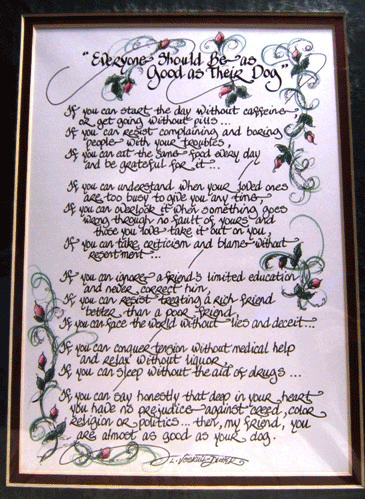 "Everyone Should Be as
Good as Their Dog"
If you can start the day without caffeine
or get going without pills...
If you can resist complaining and boring
people with your troubles,
If you can eat the same food every day
and be grateful for it...
If you can understand when your loved ones
are too busy to give you any time,
If you can overlook it when something goes
wrong through no fault of yours and
those you love take it out on you,
If you can take criticism and blame without
resentment...
If you can ignore a friend's limited education
and never correct him,
If you can resist treating a rich friend
better than a poor friend,
If you can face the world without lies and deceit...
If you can conquer tension without medical help
and relax without liquor,
If you can sleep without the aid of drugs...
If you can say honestly that deep in your heart
you have no prejudice against creed, color
religion or politics... then, my friend, you
are almost as good as your dog.